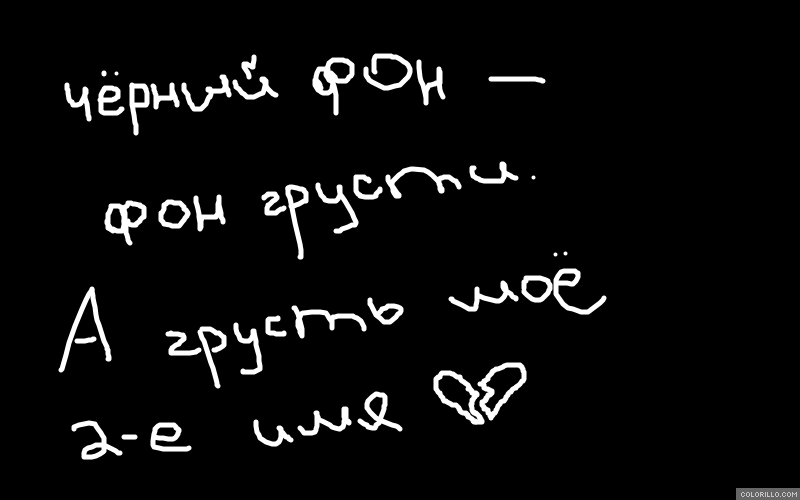 чёрний фон —
фон грусти.
А грусть моё
2-е имя 💔
COLORILLO.COM